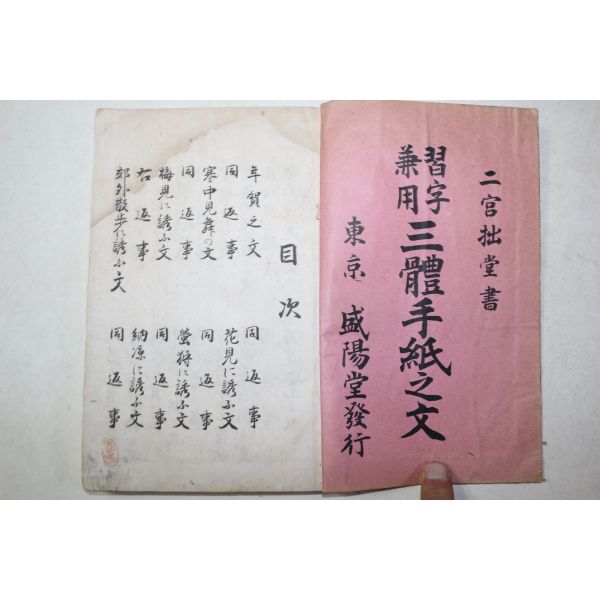 二宮拙堂書
習字兼用 三體手紙之文
東京 盛陽堂發行
目次
年賀之文
同返事
寒中見舞の文
同返事
梅見に誘ふ文
右返事
郊外散歩に誘ふ文
同返事
花見に誘ふ文
同返事
螢狩に誘ふ文
同返事
納凉に誘ふ文
同返事